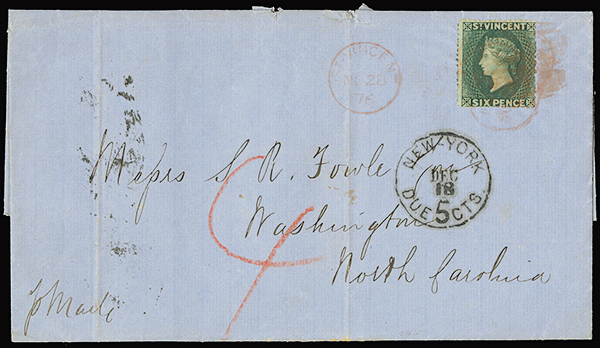 ST. VINCENT
SIX PENCE
ST. VINCENT
28
76
NEW-YORK
DEC
18
DUE 5 CTS.
Messrs S. R. Fowle
Washington
North Carolina